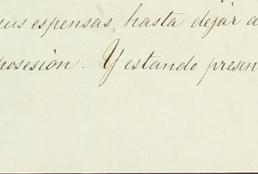 sus espensas, hasta dejar a
posesión. Y estando presen